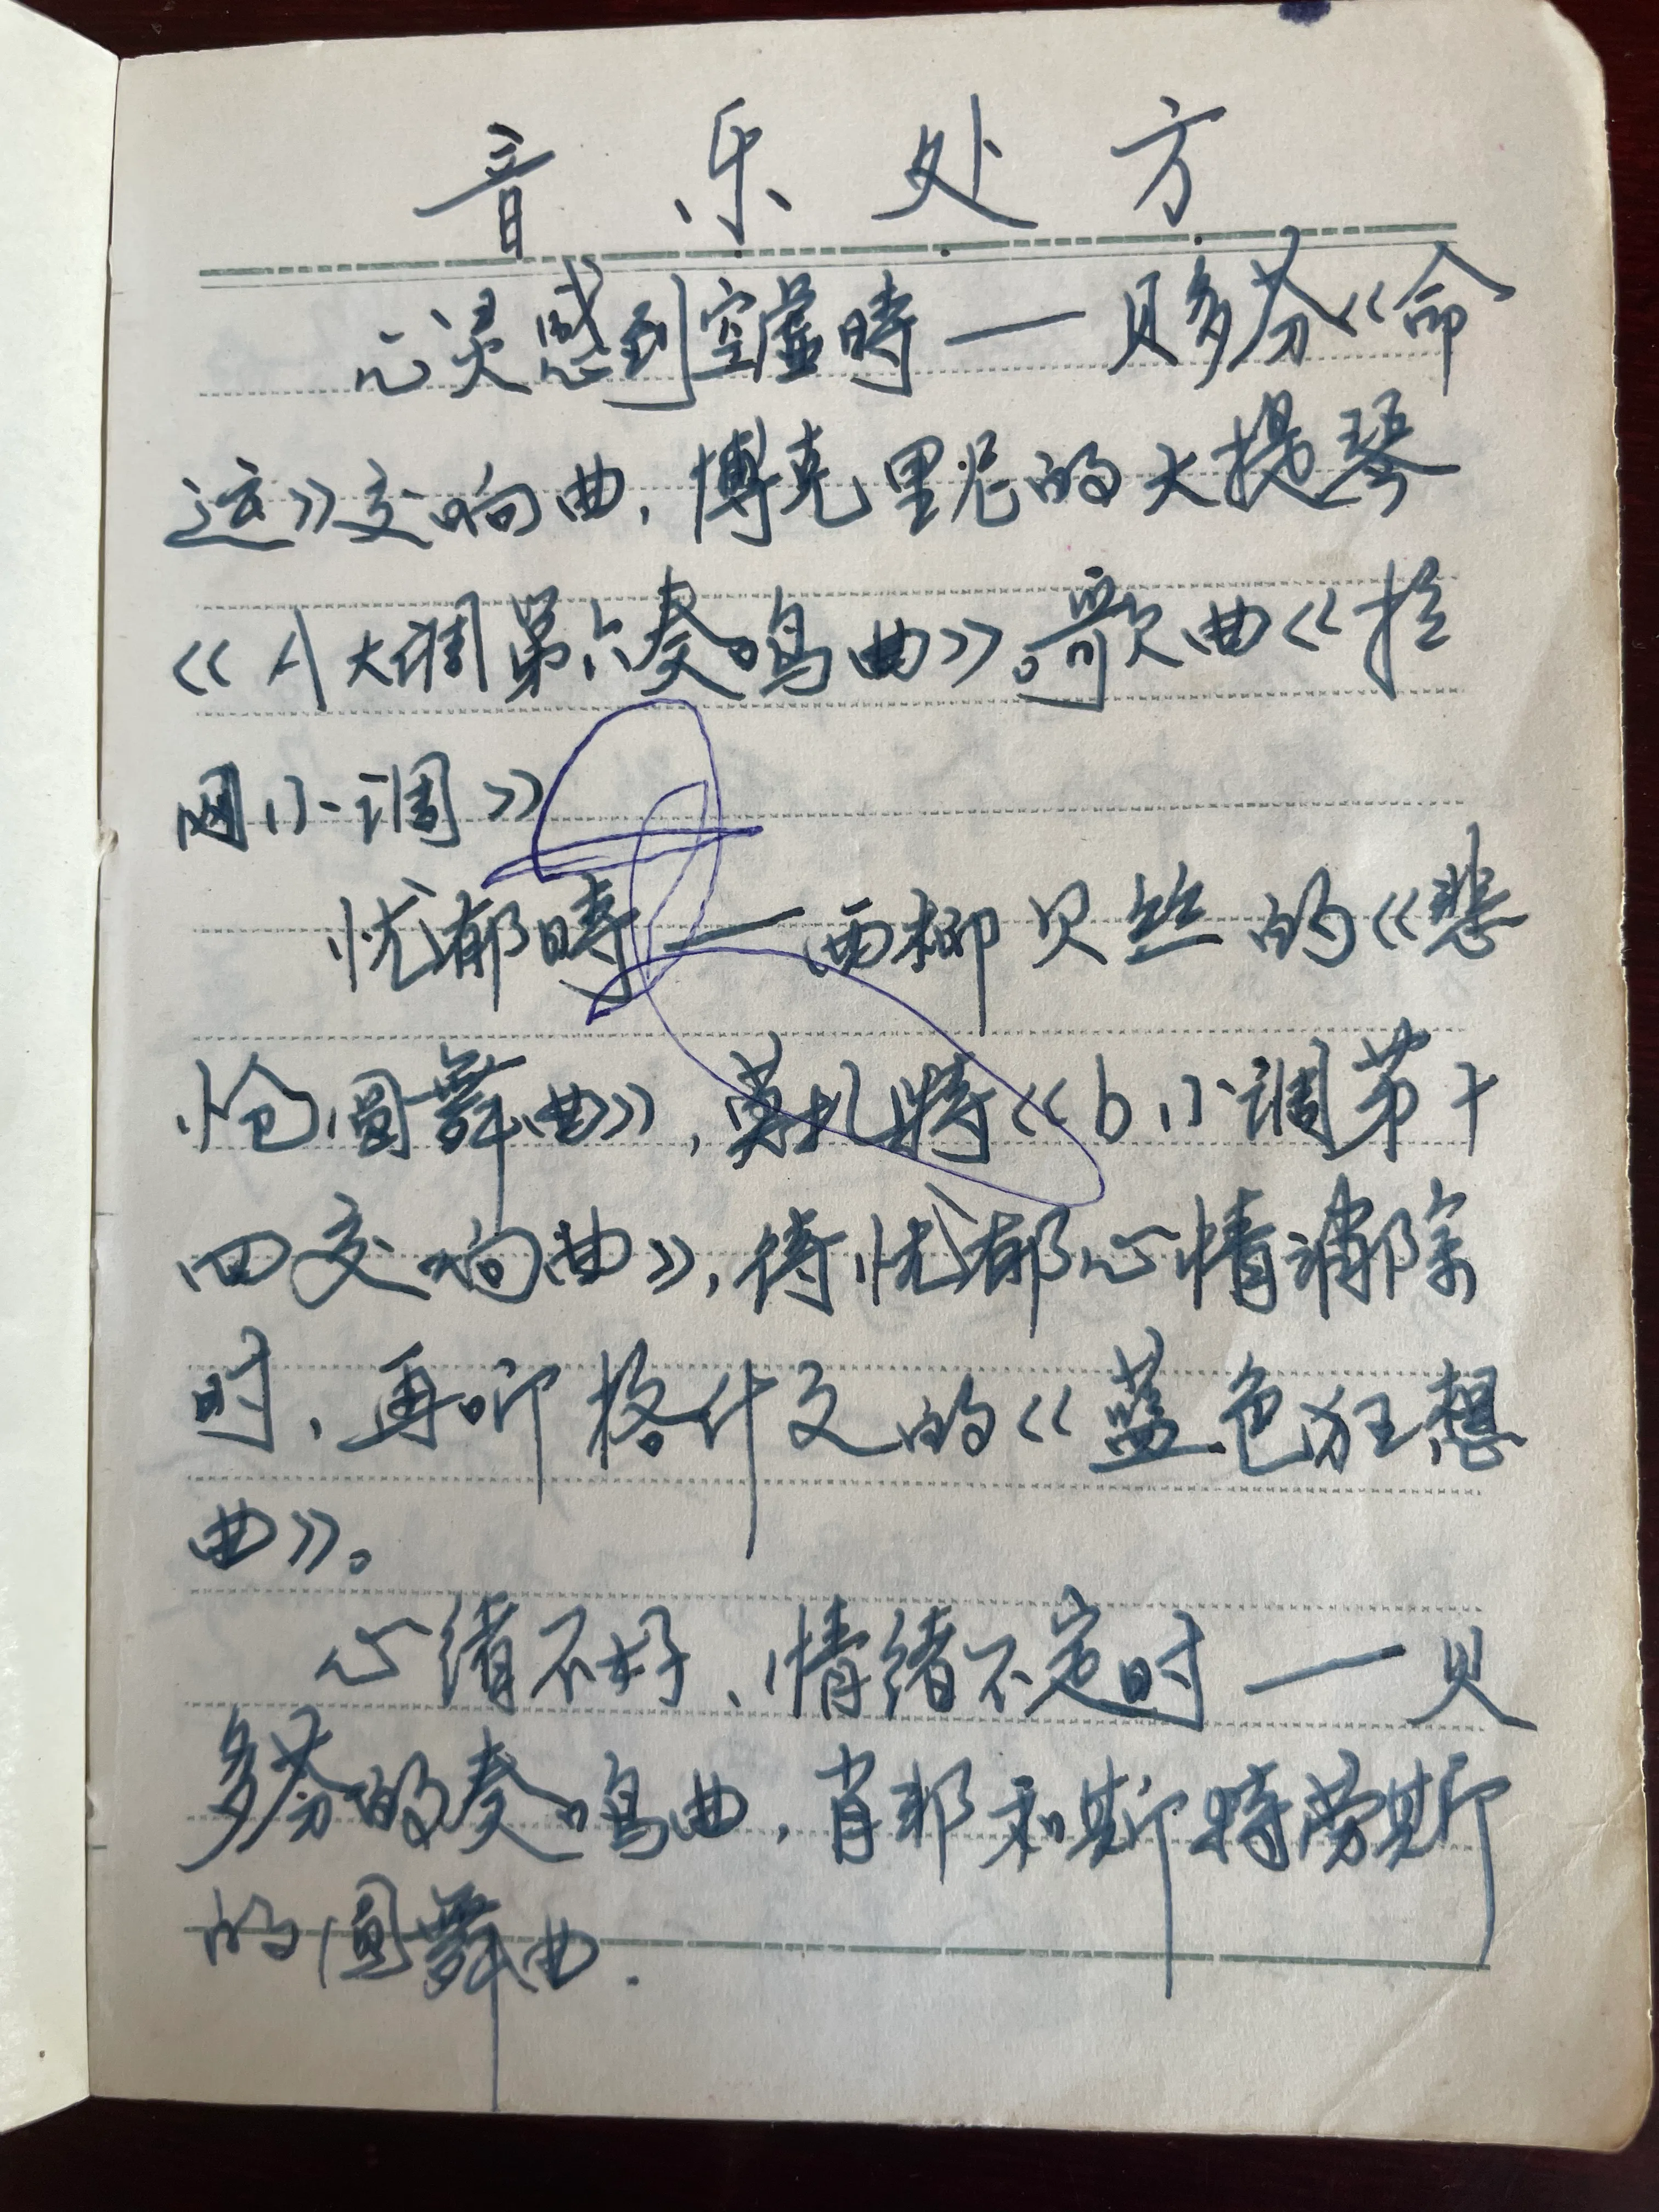 音乐处方
心灵感到空虚時——贝多芬《命
运》交响曲,博克里尼的大提琴
《A大调第六奏鸣曲》。歌曲《拉
网小调》
忧郁時——西柳贝丝的《悲
怆圆舞曲》,莫扎特《b小调第十
四交响曲》,待忧郁心情消除
时,再听格什文的《蓝色狂想
曲》。
心绪不好、情绪不定时——贝
多芬的奏鸣曲,肖邦和斯特劳斯
的圆舞曲.